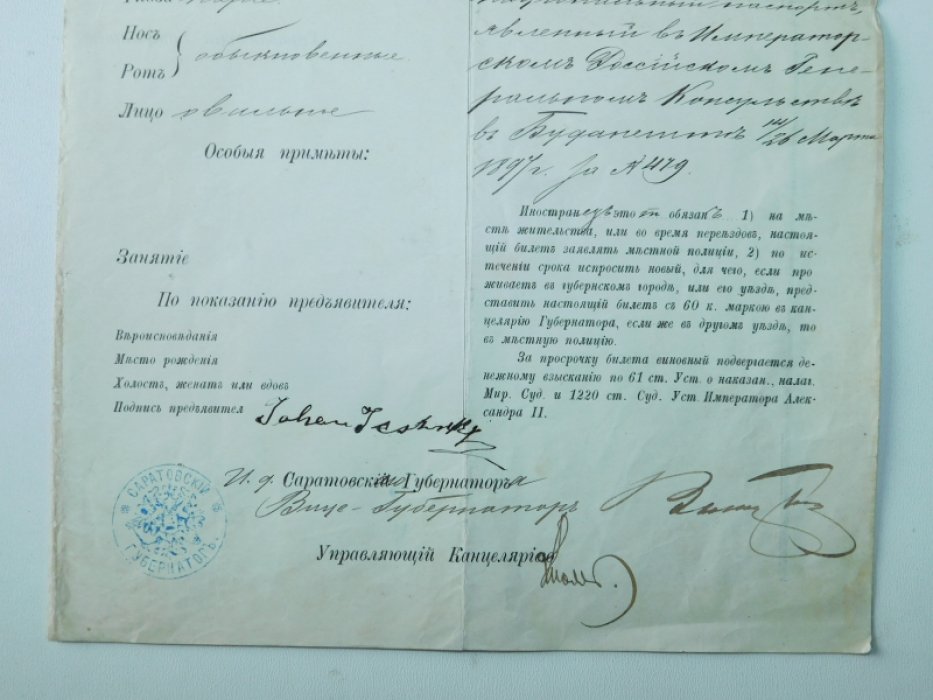 Глаза карие
Носъ
Ротъ } обыкновенные
Лицо овальное
Особыя примѣты:
Занятіе
По показанію предъявителя:
Вѣроисповѣданія
Мѣсто рожденія
Холостъ, женатъ или вдовъ
Подпись предъявител
Johan
національный паспортъ,
явленный въ Император-
скомъ Россійскомъ Гене-
ральномъ Консульствѣ
въ Будапештѣ 14/26 Марта
1897 г. за № 479.
Иностранецъ этотъ обязанъ 1) на мѣ-
стѣ жительства, или во время переѣздовъ, настоя-
щій билетъ заявлять мѣстной полиціи, 2) по ис-
теченіи срока испросить новый, для чего, если про
живаетъ въ губернскомъ городѣ, или его уѣздѣ, пред-
ставить настоящій билетъ съ 60 к. маркою въ кан-
целярію Губернатора, если же въ другомъ уѣздѣ, то
въ мѣстную полицію.
За просрочку билета виновный подвергается де-
нежному взысканію по 61 ст. Уст. о наказан., налаг.
Мир. Суд. и 1220 ст. Суд. Уст. Императора Алек-
сандра II.
И. д. Саратовскаго Губернатора
Вице-Губернаторъ
Управляющій Канцеляріею
САРАТОВСКІЙ
ГУБЕРНАТОРЪ